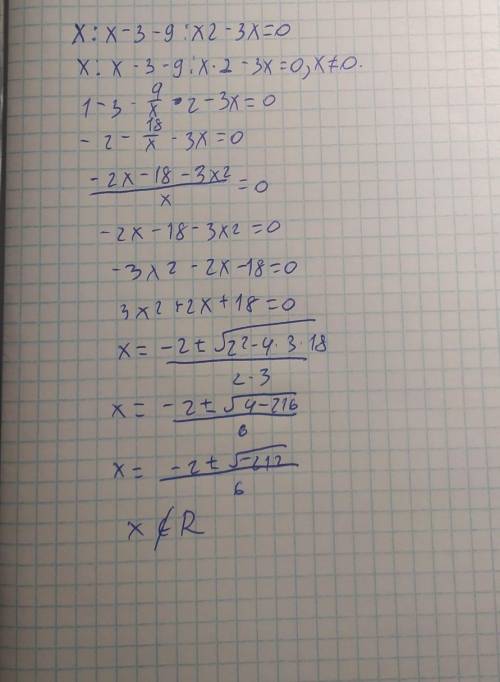 x : x - 3 - 9 : x2 - 3x = 0
x : x - 3 - 9 : x · 2 - 3x = 0, x ≠ 0.
1 - 3 - 9/x · 2 - 3x = 0
- 2 - 18/x - 3x = 0
(-2x - 18 - 3x²)/x = 0
-2x - 18 - 3x² = 0
-3x² - 2x - 18 = 0
3x² + 2x + 18 = 0
x = (-2 ± √(2² - 4 · 3 · 18))/(2 · 3)
x = (-2 ± √(4 - 216))/6
x = (-2 ± √(-212))/6
x ∉ R